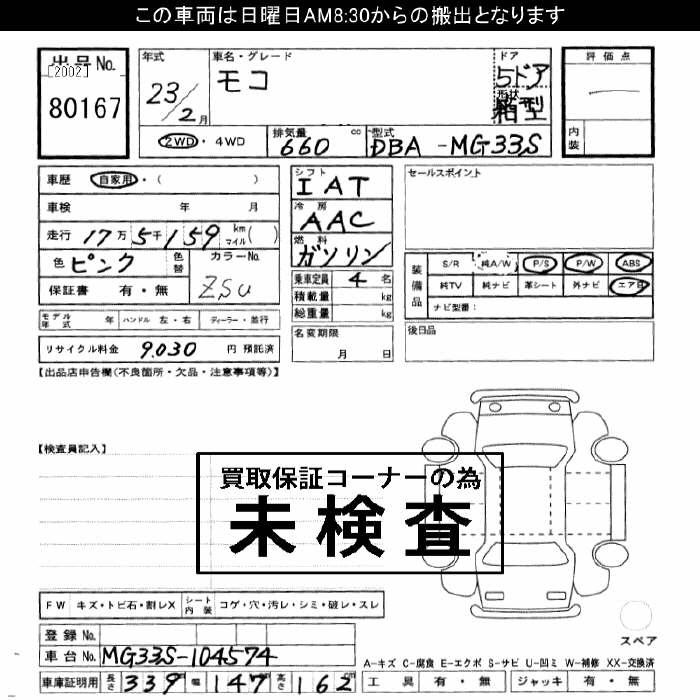 この車両は日曜日AM8:30からの搬出となります
出品No.
[2002]
80167
年式
23/2月
車名・グレード
モコ
ドア
5ドア
形状
箱型
2WD・4WD
排気量 660 cc
型式 DBA-MG33S
評価点
内装
車歴 自家用・( )
車検 年 月
走行 17万5千159 km マイル( )
色 ピンク 色替 カラーNo. ZSU
保証書 有・無
モデル年式 年 ハンドル 左・右 ディーラー・並行
リサイクル料金 9,030 円 預託済
シフト
IAT
冷房
AAC
燃料
ガソリン
乗車定員 4 名
積載量 kg
総重量 kg
名変期限
月 日
セールスポイント
装備品
S/R 純A/W P/S P/W ABS
純TV 純ナビ 革シート 外ナビ エアB
ナビ型番:
後日品
【出品店申告欄(不良箇所・欠品・注意事項等)】
【検査員記入】
買取保証コーナーの為
未検査
FW キズ・トビ石・割レX シート内装 コゲ・穴・汚レ・シミ・破レ・スレ
スペア
登録No.
車台No. MG33S-104574
車庫証明用 長さ 339 幅 147 高さ 162 cm
A-キズ C-腐食 E-エクボ S-サビ U-凹ミ W-補修 XX-交換済
工具 有・無 ジャッキ 有・無